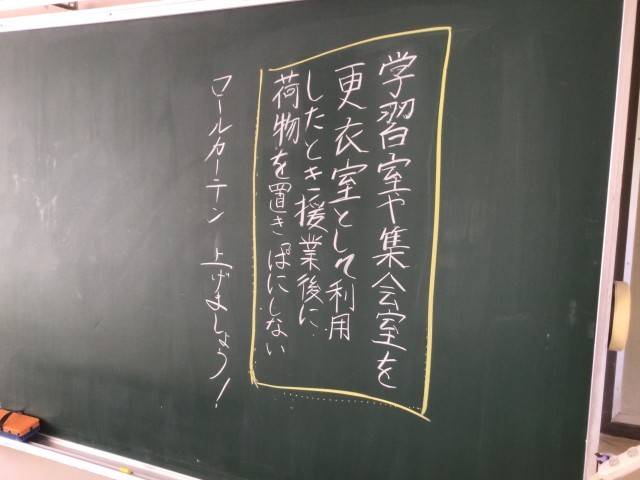 学習室や集会室を
更衣室として利用
したとき援業後に
荷物を置きぱにしない
ロールカーテン 上げましょう!